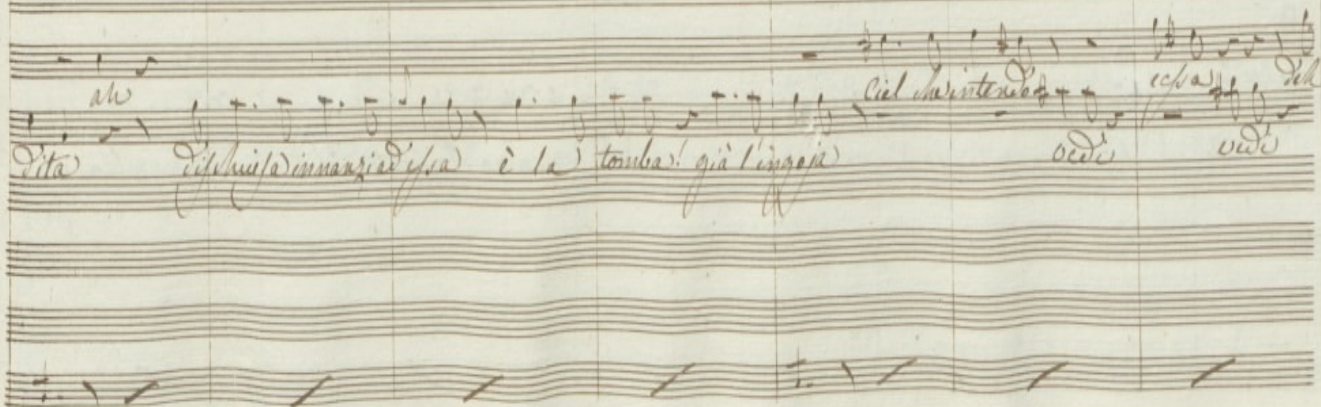 ah Ciel che intendo essa deh
dita dischiusa innanzi ad essa è la tomba! già l'ingoja vedi vedi